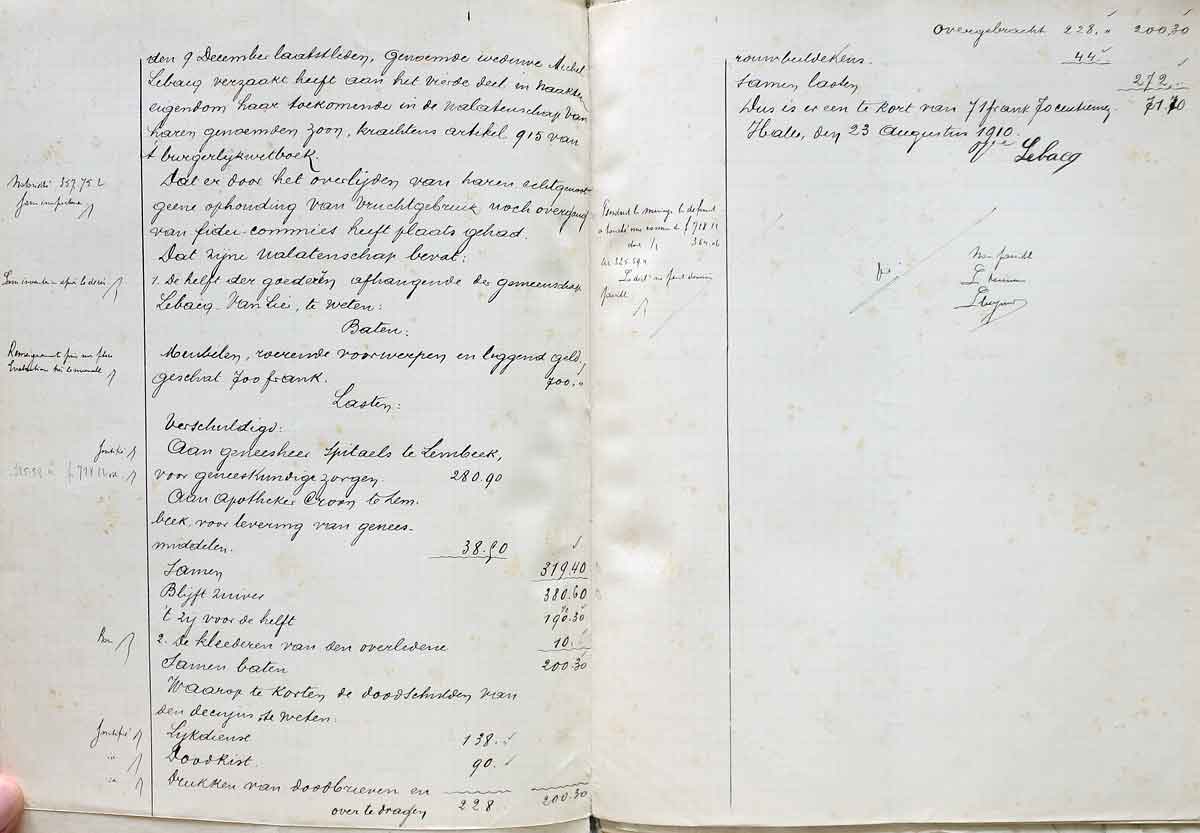 den 9 December laatstleden, Genoemde weduwe Michel
Lebacq verzaakt heeft aan het vierde deel in naakten
eigendom haar toekomende in de nalatenschap van
haren genoemden zoon, krachtens artikel 915 van
't burgerlijkwetboek.
Dat er door het overlijden van haren echtgenoot
geene ophouding van vruchtgebruik noch overgang
van fidei-commies heeft plaats gehad.
Dat zijne nalatenschap bevat:
1. De helft der goederen afhangende der gemeenschap
Lebacq-Van Lier, te weten:
Baten:
Meubelen, roerende voorwerpen en liggend geld,
geschat 700 frank. 700.„
Lasten:
Verschuldigd:
Justifié
Aan geneesheer Spitaels te Lembeek,
voor geneeskundige zorgen. 280.90
Aan Apotheker Croon te Lem-
beek, voor levering van genees-
middelen. 38.50
Samen 319.40
Blijft zuiver 380.60
't zij voor de helft 190.30
Bon
2. De kleederen van den overledene 10.
Samen baten 200.30
Waarop te korten de doodschulden van
den decujus, te weten:
Justifié
Lijkdienst 138.
Doodkist. 90.
Drukken van doodbrieven en
over te dragen 228 200.30
overgebracht 228,„ 200,30
rouwbeeldekens. 44
Samen lasten 272,
Dus is er een te kort van 71 frank 70 centiemen 71.70
Halle, den 23 Augustus 1910.
Lebacq